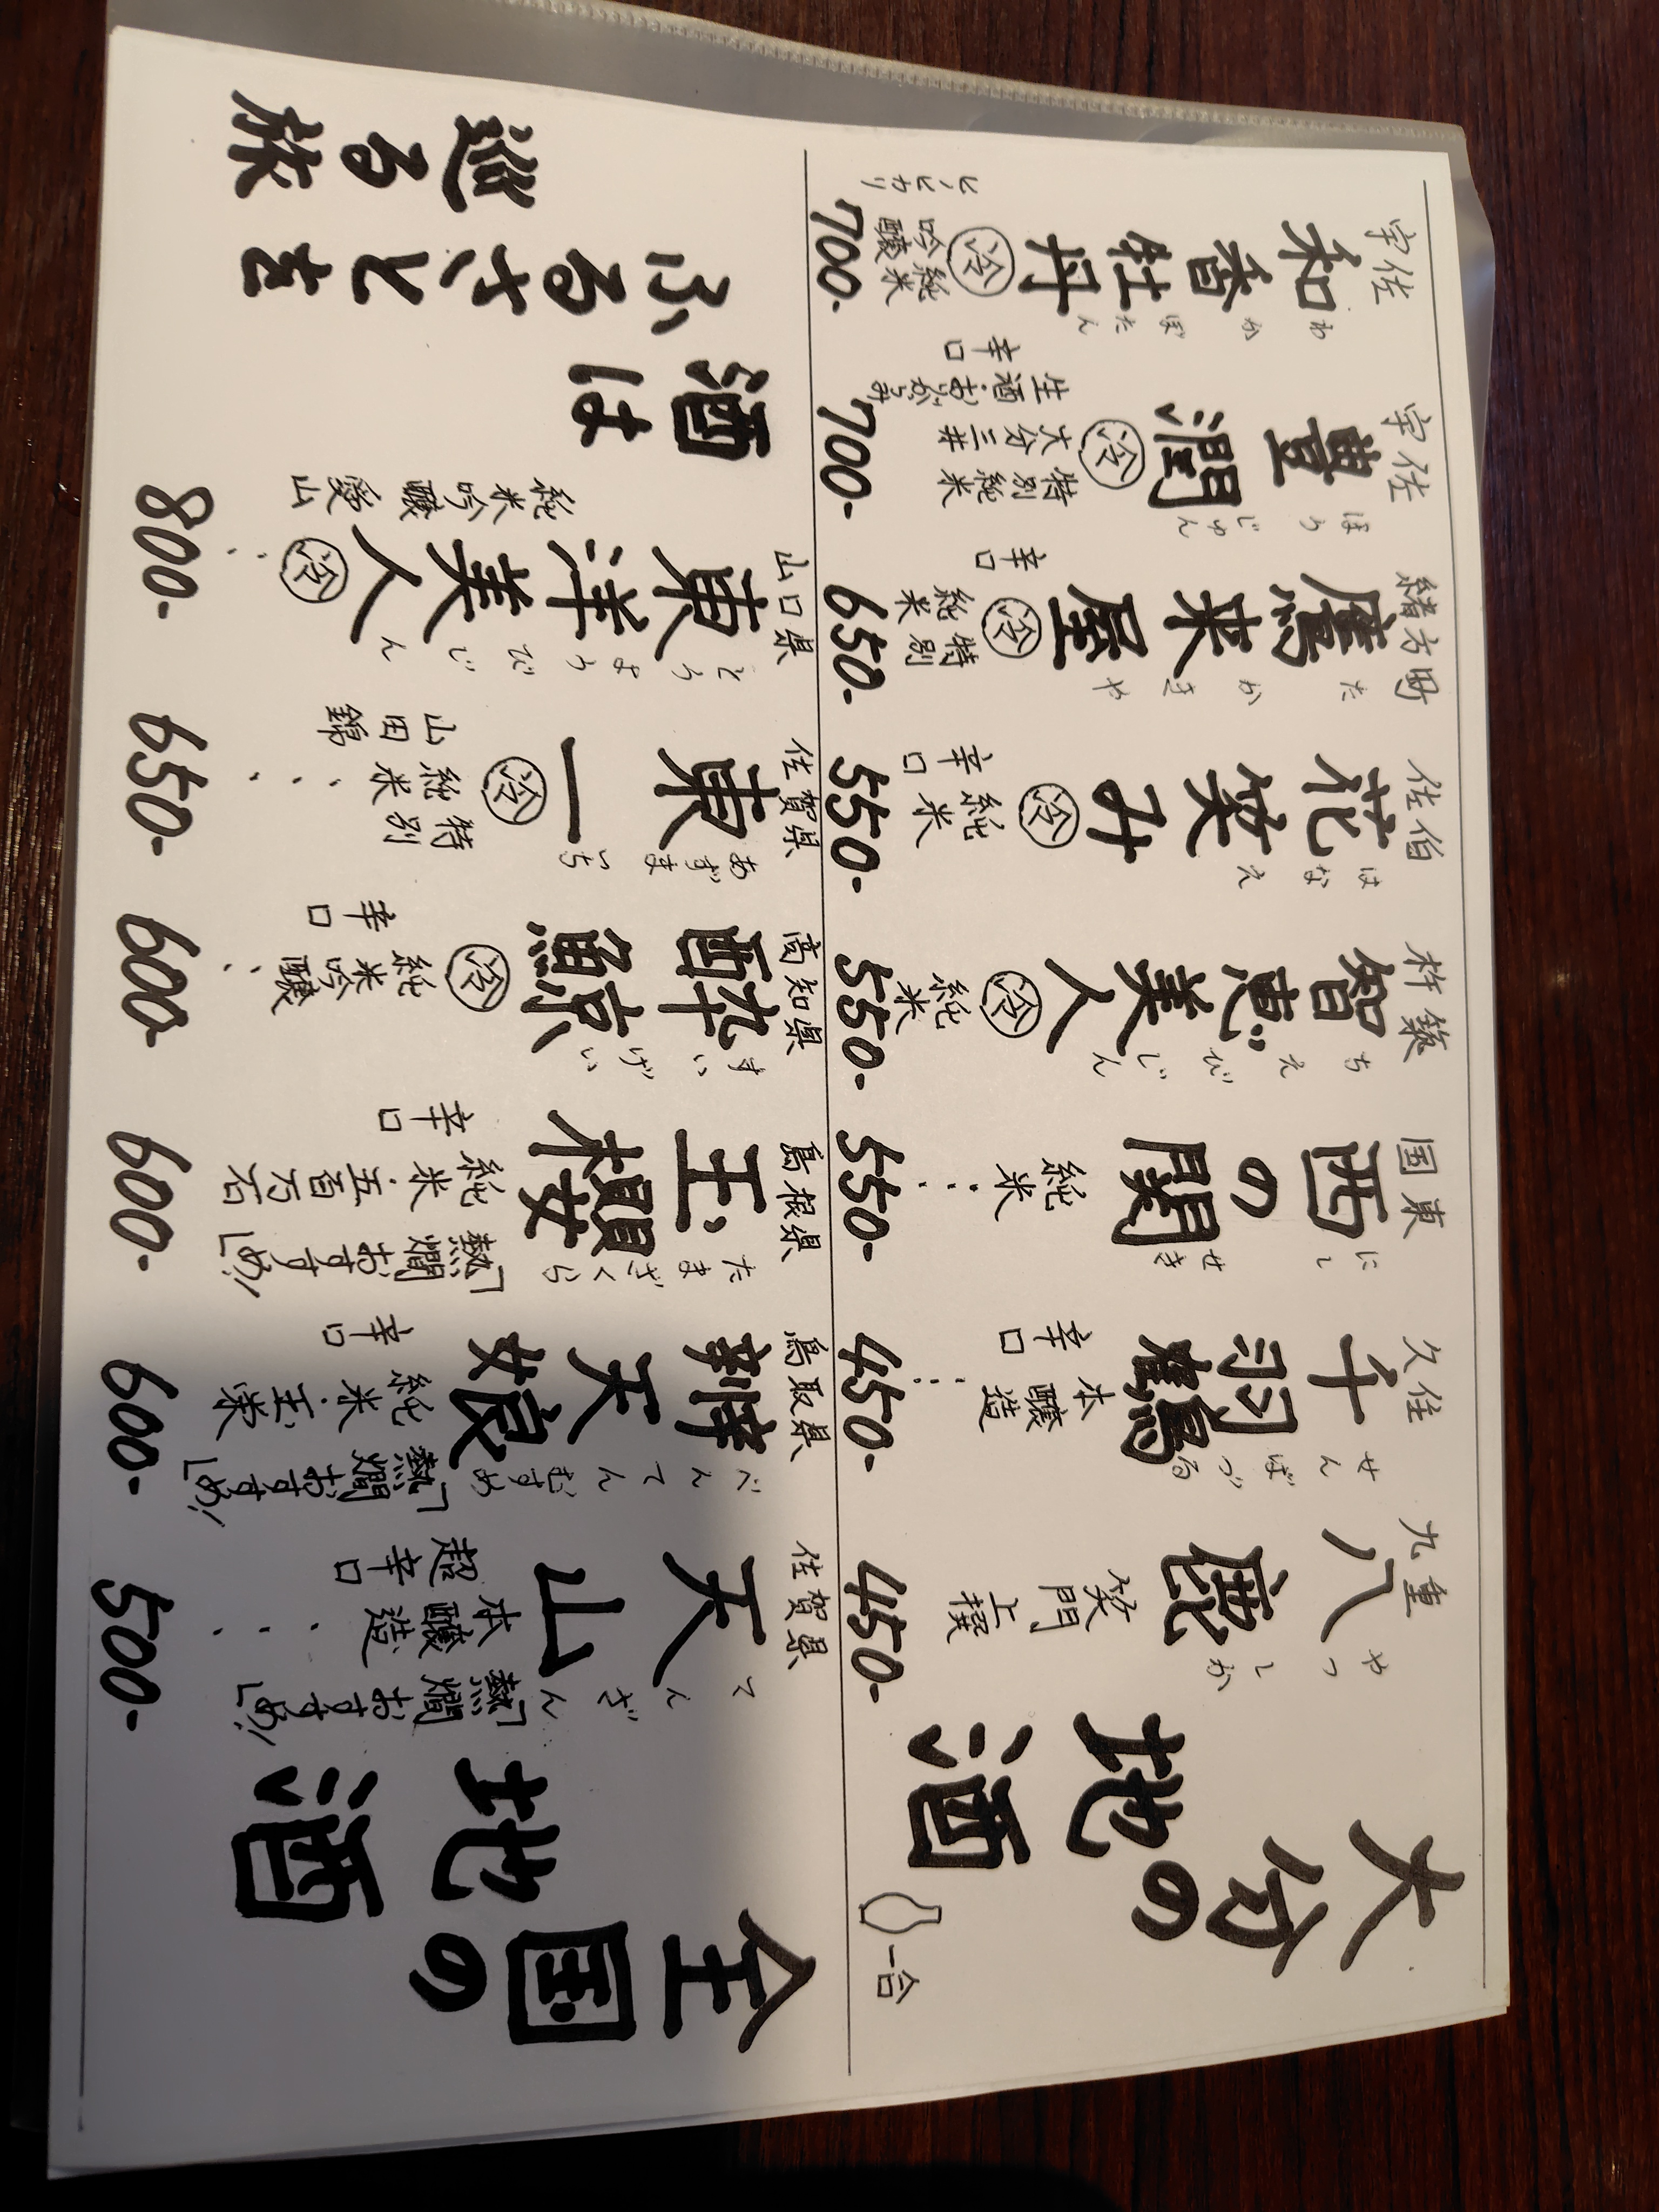 大分の
地酒
一合
九重
八鹿
やつしか
笑門
上撰
450-
久住
千羽鶴
せんばづる
本醸造
辛口
450-
国東
西の関
にしせき
純米
550-
杵築
智恵美人
ちえびじん
冷
純米
550-
佐伯
花笑み
はなえ
冷
純米
辛口
550-
緒方町
鷹来屋
たかきや
冷
特別
純米
辛口
650-
宇佐
豊潤
ほうじゅん
冷
特別純米
大分三井
生酒・おりがらみ
辛口
700-
宇佐
和香牡丹
わかぼたん
冷
純米
吟醸
ヒノヒカリ
700-
全国の
地酒
佐賀県
天山
てんざん
本醸造
超辛口
「熱燗
おすすめ!」
500-
鳥取県
辨天娘
べんてんむすめ
純米・玉栄
辛口
「熱燗
おすすめ!」
600-
島根県
玉櫻
たまざくら
純米・五百万石
辛口
「熱燗
おすすめ!」
600-
高知県
酔鯨
すいげい
冷
純米吟醸
辛口
600-
佐賀県
東一
あずまいち
冷
特別
純米
山田錦
650-
山口県
東洋美人
とうようびじん
冷
純米吟醸 愛山
800-
酒は
ふるさとを
巡る旅